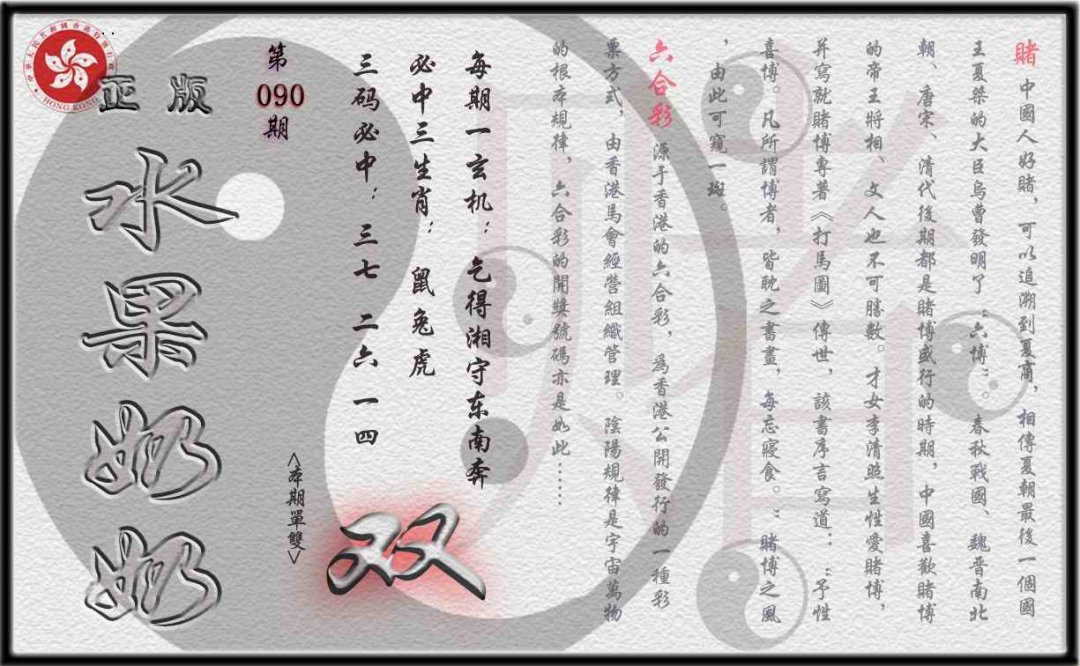 賭 中國人好賭，可以追溯到夏商，相傳夏朝最後一個國
王夏桀的大臣烏曹發明了“六博”。春秋戰國、魏晉南北
朝、唐宋、清代後期都是賭博盛行的時期，中國喜歡賭博
的帝王將相、文人也不可勝數。才女李清照生性愛賭博，
并寫就賭博專著《打馬圖》傳世，該書序言寫道：“予性
喜博。凡所謂博者，皆耽之書畫，每忘寢食。”賭博之風
，由此可窺一斑。
六合彩 源于香港的六合彩，為香港公開發行的一種彩
票方式，由香港馬會經營組織管理。陰陽規律是宇宙萬物
的根本規律，六合彩的開獎號碼亦是如此……
每期一玄机：乞得湘守东南奔
必中三生肖：鼠兔虎
三码必中：三七 二六 一四
双
<本期單雙>
第090期
正版
水果奶奶
中華人民共和國香港特別行政區
HONG KONG